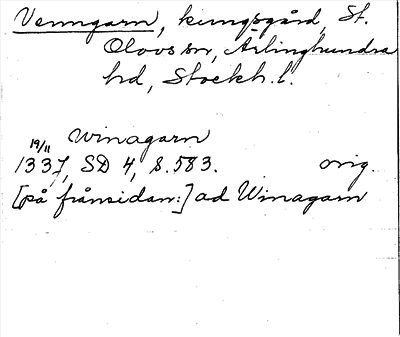 Venngarn, kungsgård, St.
Olovs sn, Ärlinghundra
hd, Stockh. l.
winagarn
19/11
1337, SD 4, s. 583. orig.
[på frånsidan:] ad Winagarn